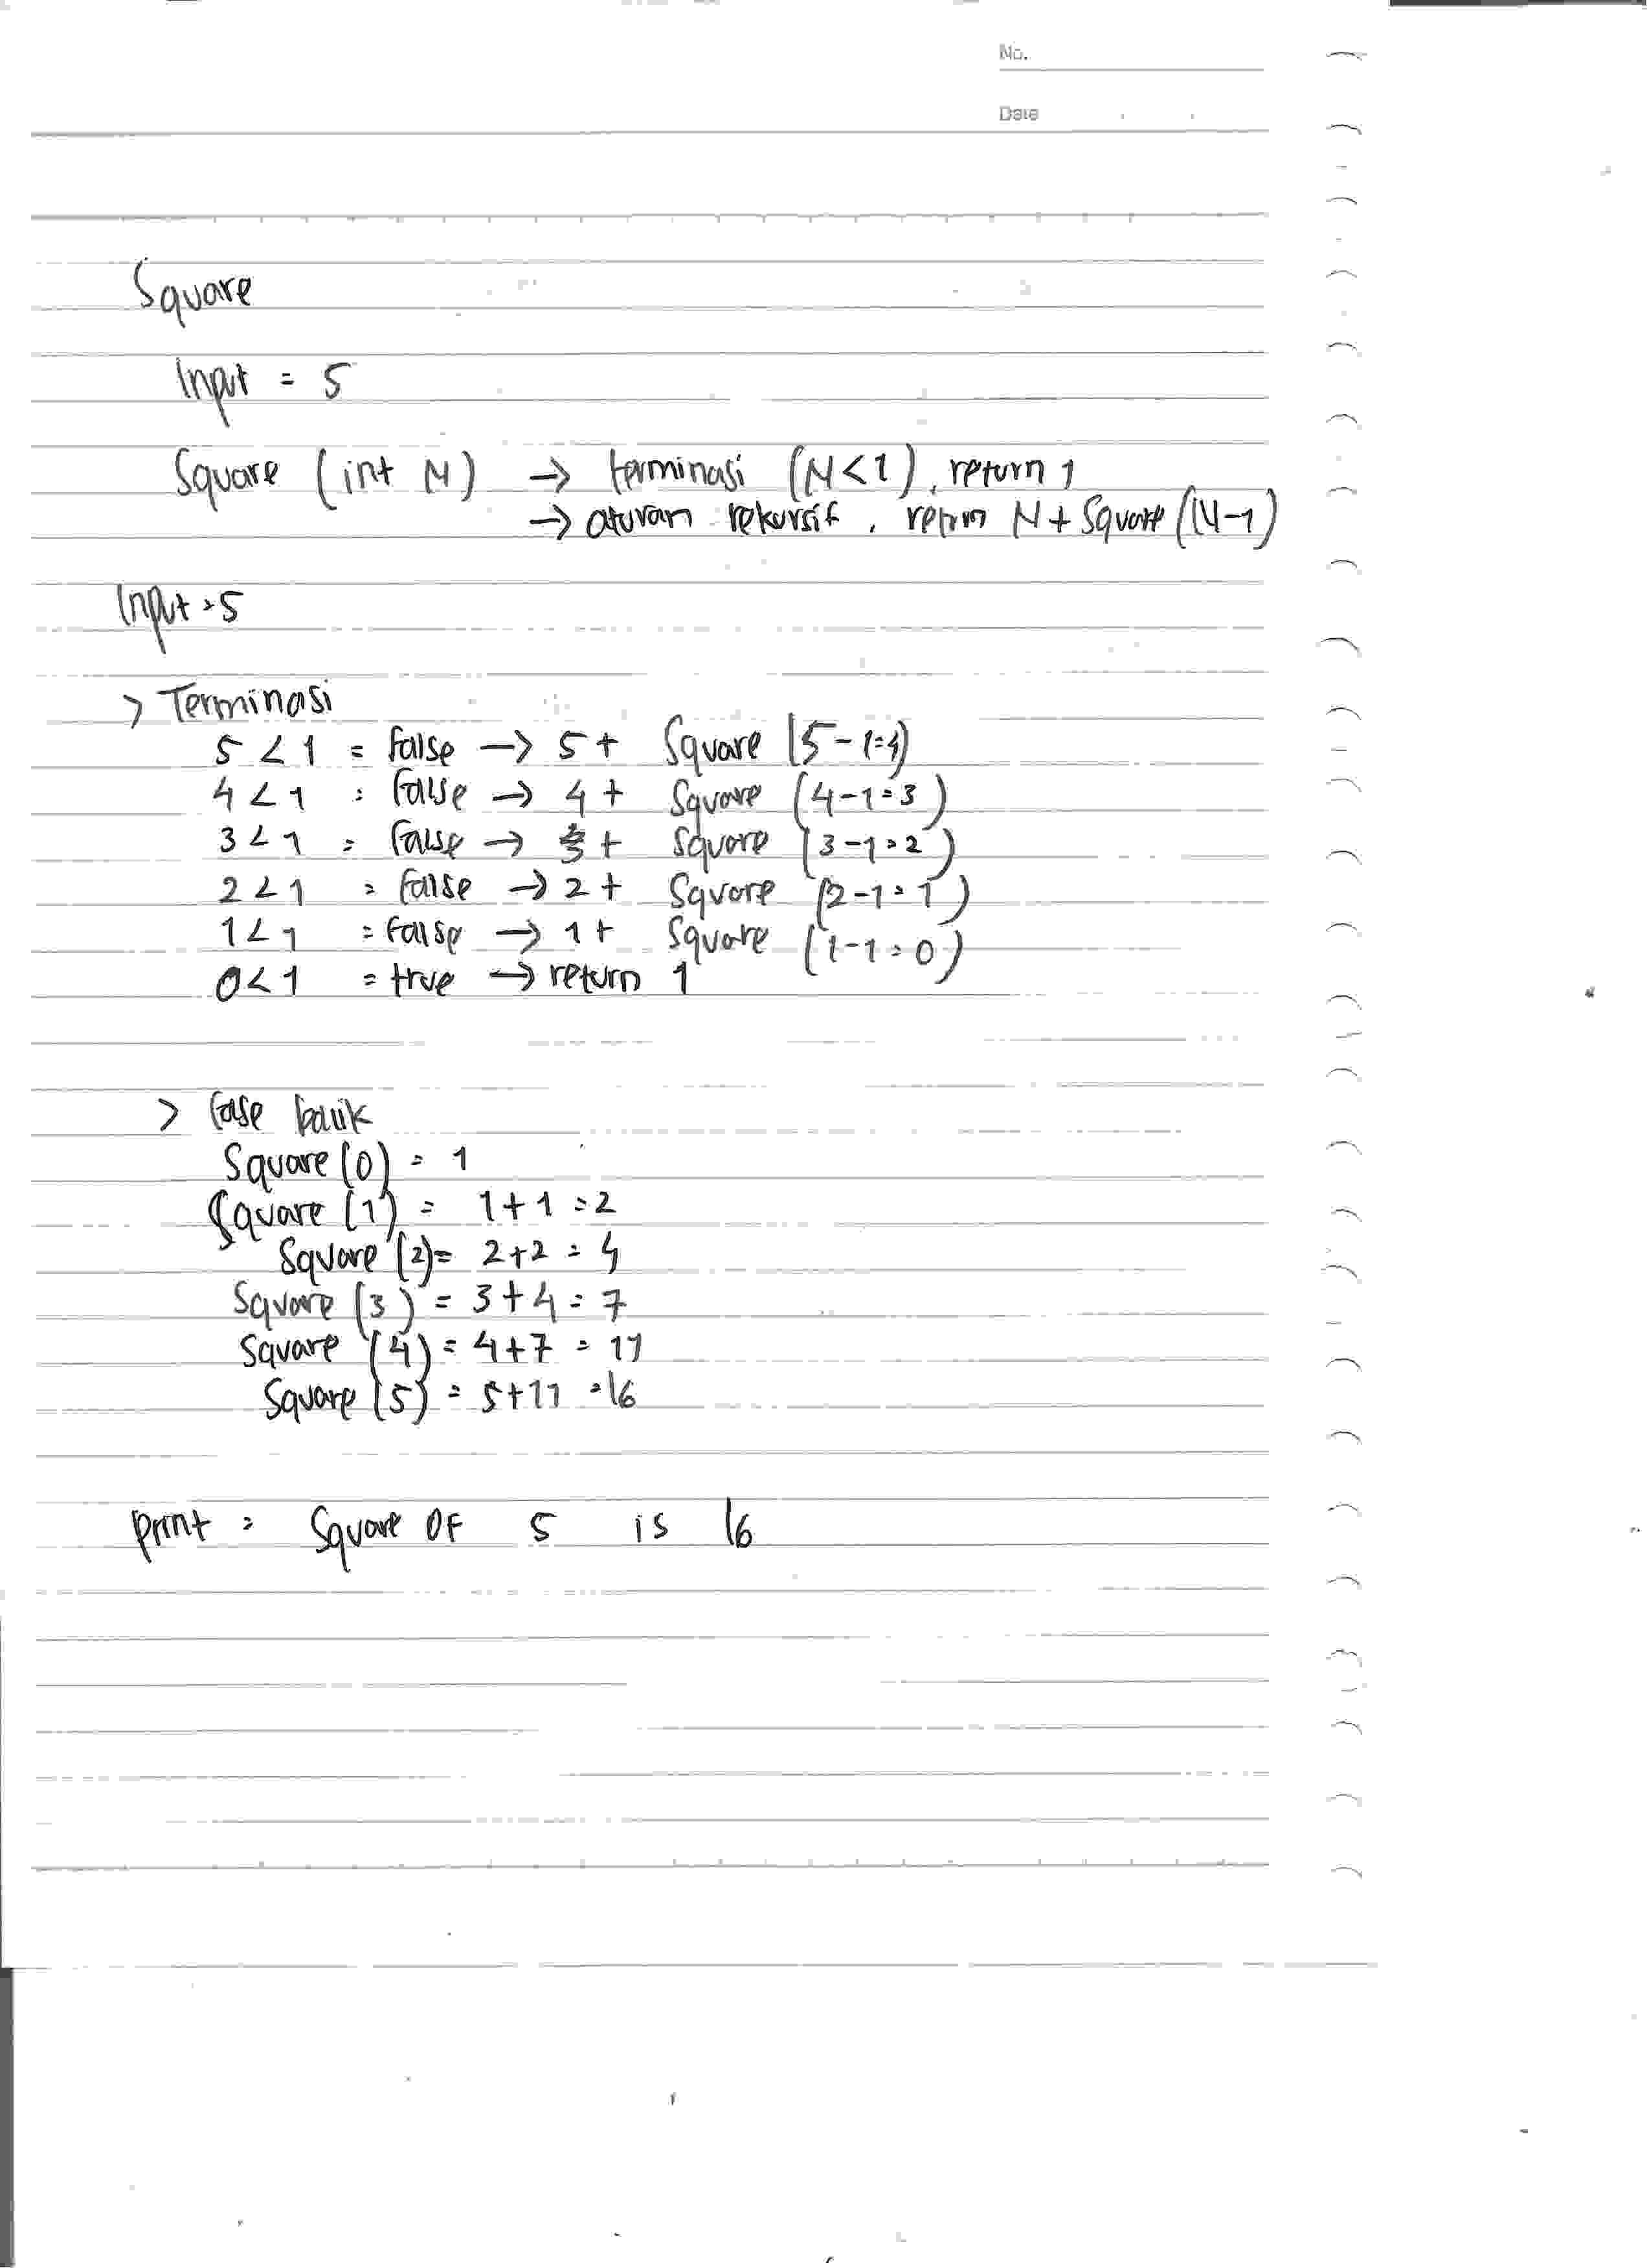 No.
Date
Square
Input = 5
Square (int N) → terminasi (N<1), return 1
→ aturan rekursif, return N + Square (N-1)
Input = 5
> Terminasi
5 < 1 = false → 5 + Square (5-1=4)
4 < 1 = false → 4 + Square (4-1=3)
3 < 1 = false → 3 + Square (3-1=2)
2 < 1 = false → 2 + Square (2-1=1)
1 < 1 = false → 1 + Square (1-1=0)
0 < 1 = true → return 1
> fase balik
Square (0) = 1
Square (1) = 1+1 = 2
Square (2) = 2+2 = 4
Square (3) = 3+4 = 7
Square (4) = 4+7 = 11
Square (5) = 5+11 = 16
print = Square OF 5 is 16